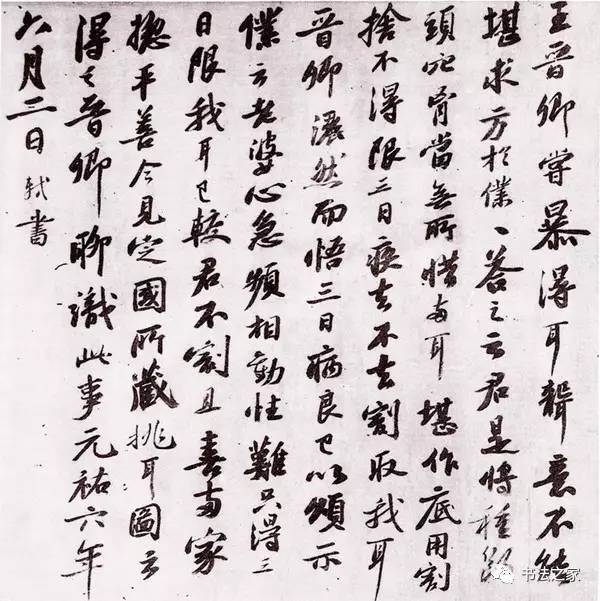 王晉卿嘗暴得耳聾意不能
堪求方於僕、答之云君是將種斷
頭穴胷當無所惜兩耳堪作底用割
捨不得限三日疾去不去割取我耳
晉卿灑然而悟三日病良已以頌示
僕云老婆心急頻相勸性難只得三
日限我耳已較君不割且喜兩家
揔平善今見定國所藏挑耳圖云
得之晉卿聊識此事元祐六年
六月三日軾書
书法之家